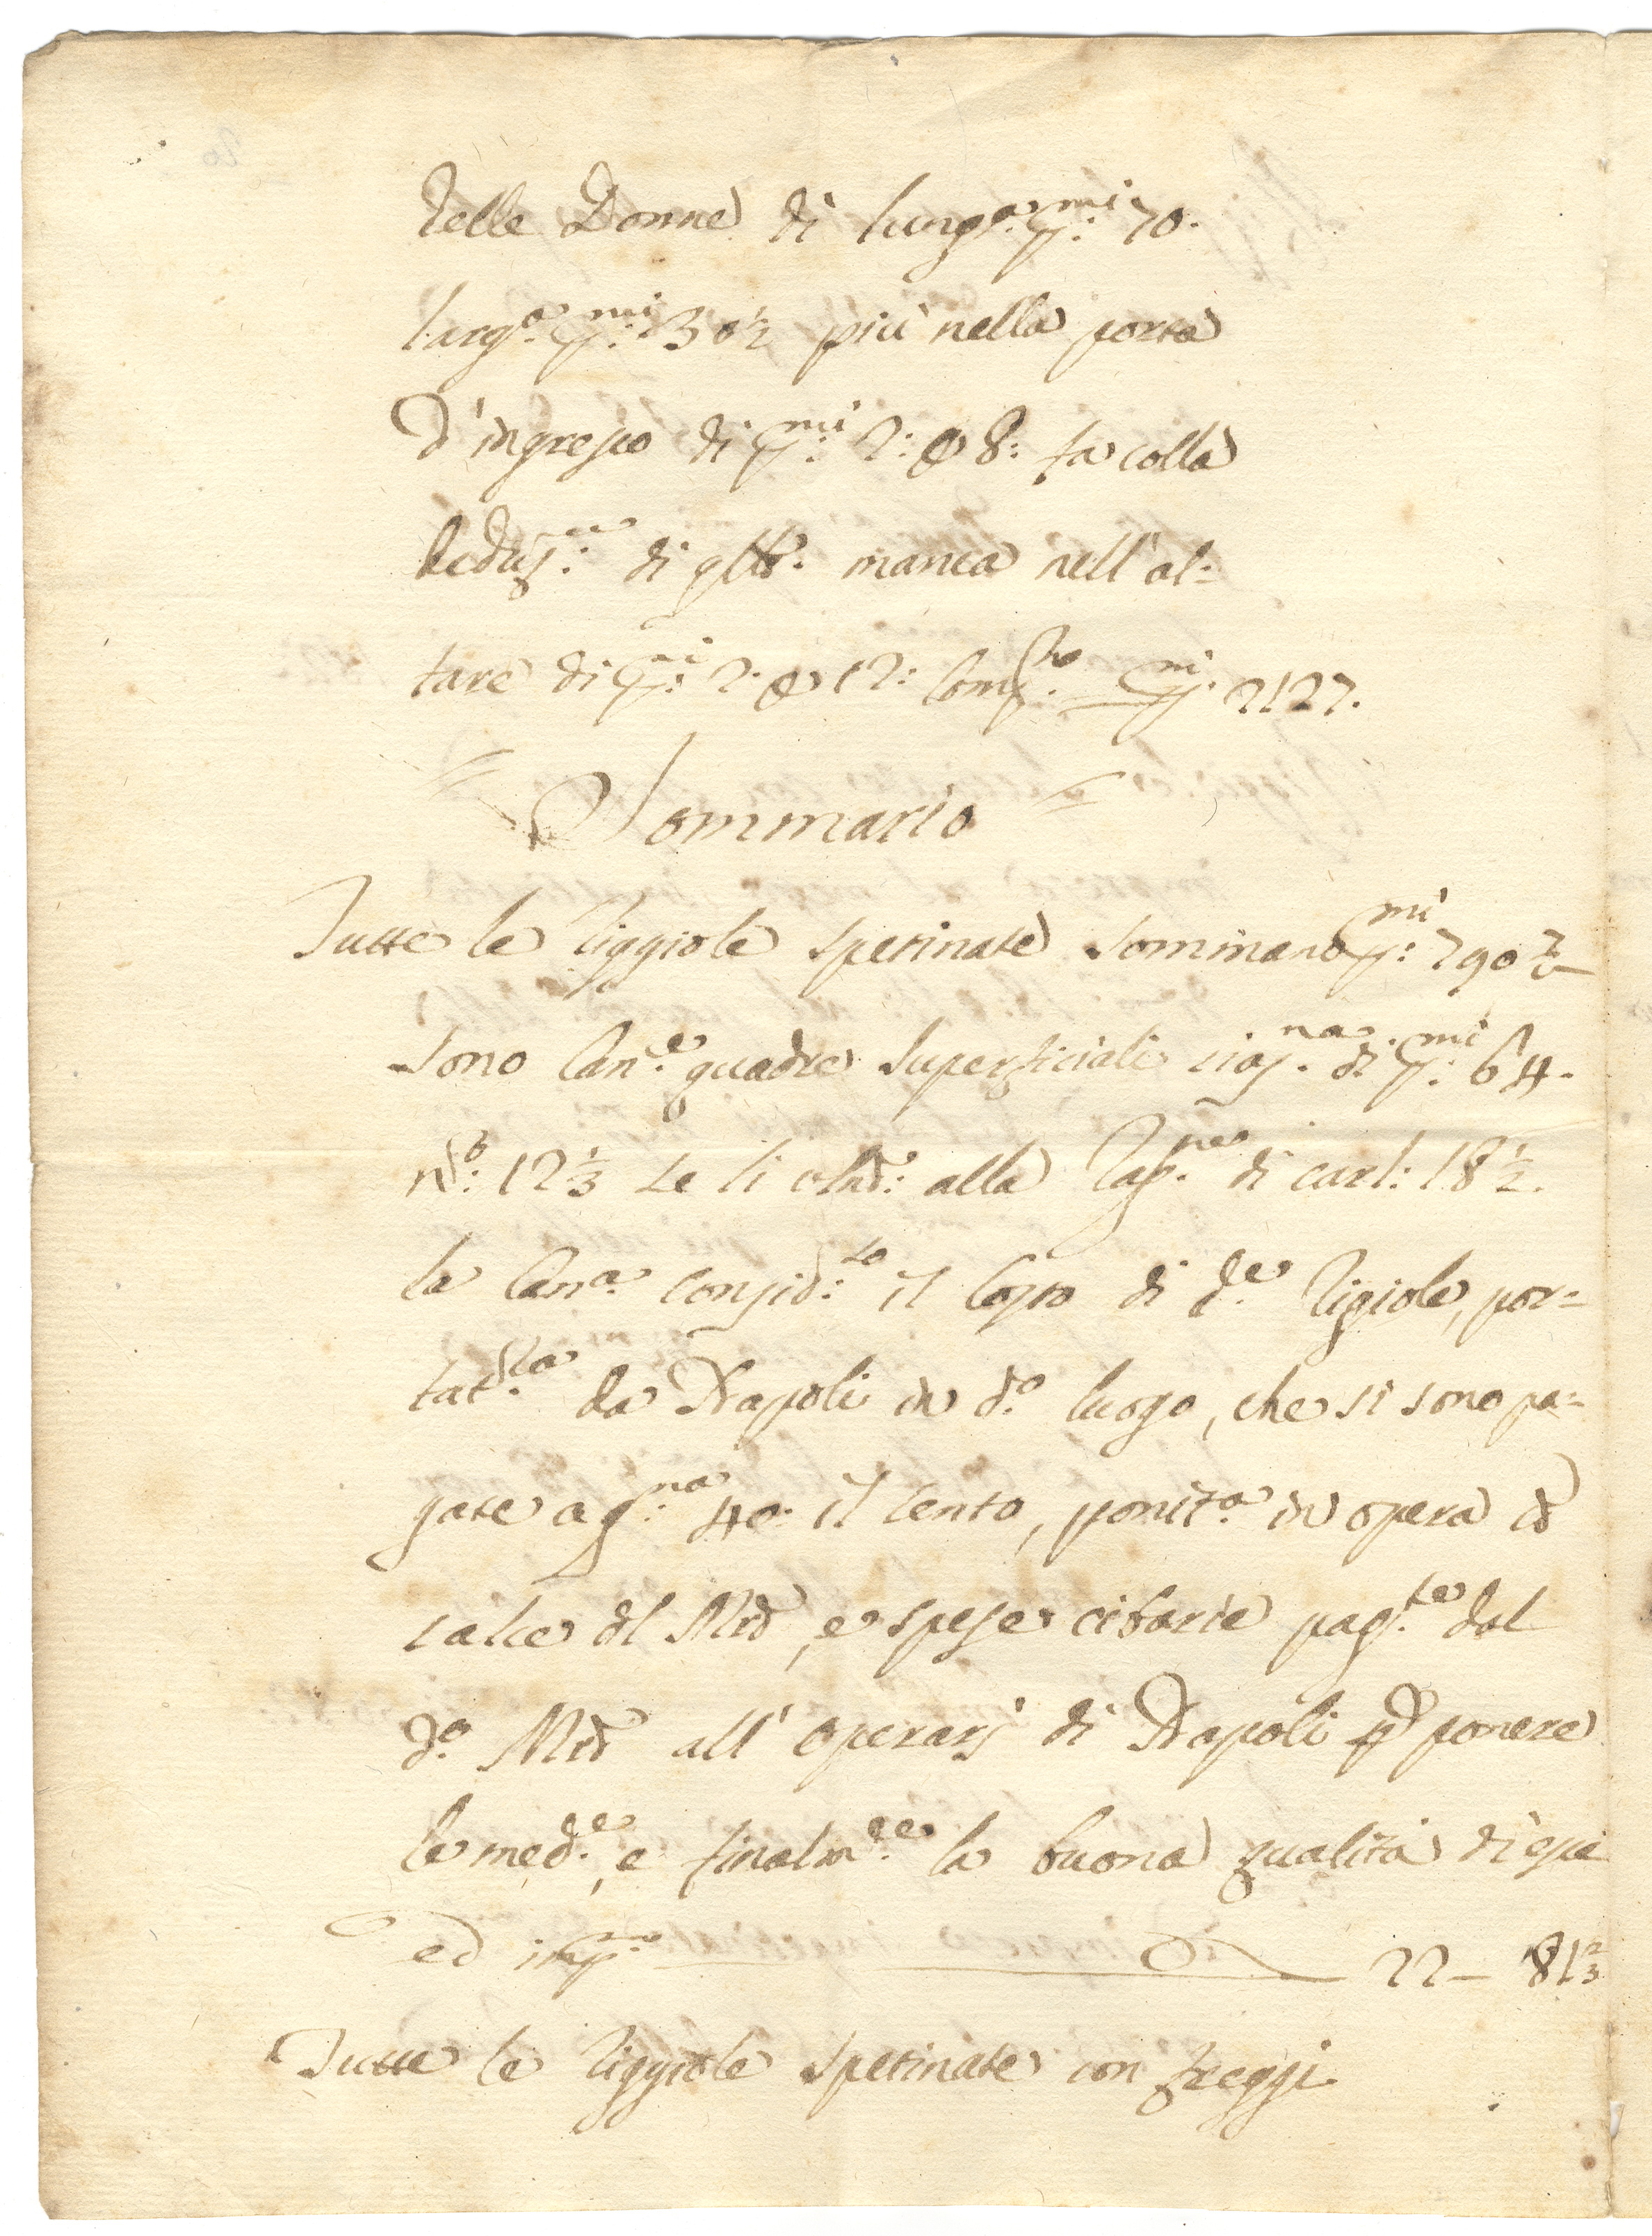 delle Donne di lungª pmi: 70.
largª pmi: 30½ più nella porta
d'ingresso di pmi: 2: e 8: fa colla
deduzne: di qllo: manca nell'al=
tare di pmi: 2: e 12: Compo. pmi. 2127.
Sommario
Tutte le Riggiole spetinate sommano pmi: 790⅔
sono Canᵉ quadre superficiali ciasna. di pmi: 64.
nº: 12⅓ se li alla Ragne. di carl: 18½.
la Canª consid:to il Costo di dᵉ Rigiole, por=
tat.ra da Napoli in dº luogo, che si sono pa=
gate a gna: 40: il cento, ponitª in opera
calce del Mro, e spese cibarie pag.te dal
dº Mro all' operarj di Napoli p ponere
le medᵉ, e finalmte la buona qualità di esse
ed impno 22 – 81⅔
Tutte le Riggiole spetinate con freggi